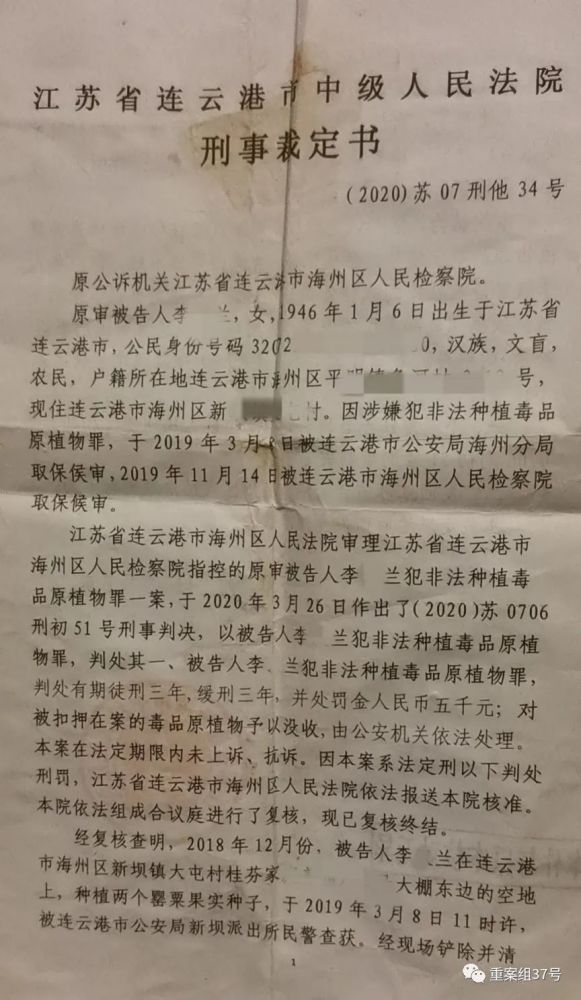 江苏省连云港市中级人民法院
刑事裁定书
(2020)苏 07 刑他 34 号
原公诉机关江苏省连云港市海州区人民检察院。
原审被告人李 兰,女,1946 年 1 月 6 日出生于江苏省
连云港市,公民身份号码 3202 0,汉族,文盲,
农民,户籍所在地连云港市海州区平 号,
现住连云港市海州区新 村。因涉嫌犯非法种植毒品
原植物罪,于 2019 年 3 月 8日被连云港市公安局海州分局
取保候审,2019 年 11 月 14 日被连云港市海州区人民检察院
取保候审。
江苏省连云港市海州区人民法院审理江苏省连云港市
海州区人民检察院指控的原审被告人李 兰犯非法种植毒
品原植物罪一案,于 2020 年 3 月 26 日作出了(2020)苏 0706
刑初 51 号刑事判决,以被告人李 兰犯非法种植毒品原植
物罪,判处其一、被告人李 兰犯非法种植毒品原植物罪,
判处有期徒刑三年,缓刑三年,并处罚金人民币五千元;对
被扣押在案的毒品原植物予以没收,由公安机关依法处理。
本案在法定期限内未上诉、抗诉。因本案系法定刑以下判处
刑罚,江苏省连云港市海州区人民法院依法报送本院核准。
本院依法组成合议庭进行了复核,现已复核终结。
经复核查明,2018 年 12 月份,被告人李 兰在连云港
市海州区新坝镇大屯村桂芬家 大棚东边的空地
上,种植两个罂粟果实种子,于 2019 年 3 月 8 日 11 时许,
被连云港市公安局新坝派出所民警查获。经现场铲除并清
1
重案组37号